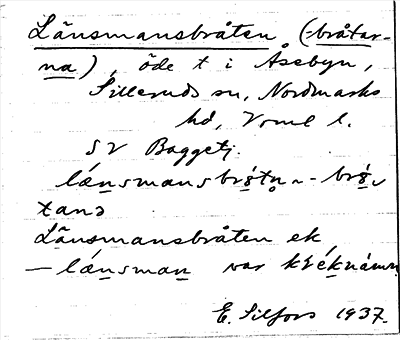 Länsmansbråten (-bråtar-
na), öde t i Åsebyn,
Silleruds sn, Nordmarks
hd, Vrml l.
SV Baggetj.
lǽnsmansbrǿtn - brǿ
tanə
Länsmansbråten ek
— lǽnsman var knéknámn
E. Silfors 1937.